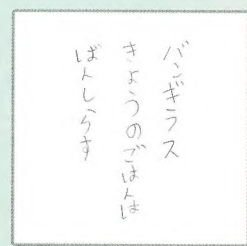 バンギラス
きょうのごはんは
ばんしらす